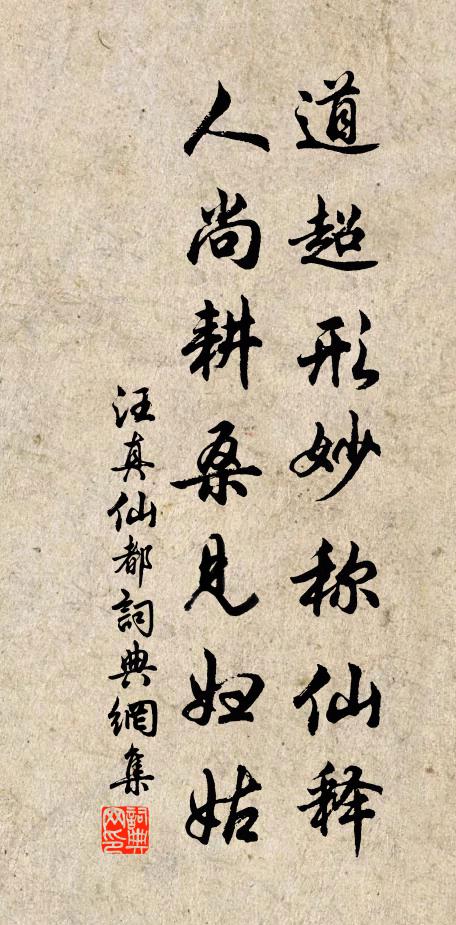 道超形妙称仙释
人尚耕桑见妇姑
汪真仙都詞典網集
詞典网印